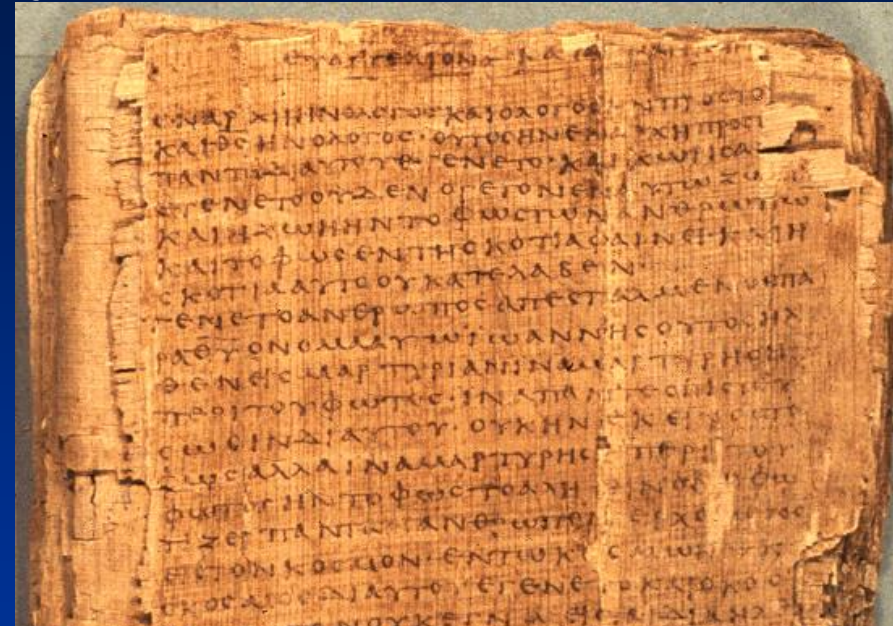 ΕΥΑΓΓΕΛΙΟΝ ΚΑΤΑ
ΕΝΑΡΧΗΗΝΟΛΟΓΟϹΚΑΙΟΛΟΓΟϹΗΝΠΡΟϹΤΟ
ΚΑΙΘ̅Ϲ̅ΗΝΟΛΟΓΟϹ·ΟΥΤΟϹΗΝΕΝΑΡΧΗΠΡΟϹ
ΠΑΝΤΑΔΙΑΥΤΟΥΕΓΕΝΕΤΟ·ΚΑΙΧΩΡΙϹΑ
ΕΓΕΝΕΤΟΟΥΔΕΝΟΓΕΓΟΝΕΝΕΝΑΥΤΩΖΩ
ΚΑΙΗΖΩΗΗΝΤΟΦΩϹΤΩΝΑΝΘΡΩΠΩ
ΚΑΙΤΟΦΩϹΕΝΤΗϹΚΟΤΙΑΦΑΙΝΕΙ·ΚΑΙΗ
ϹΚΟΤΙΑΑΥΤΟΟΥΚΑΤΕΛΑΒΕΝ·
ΕΓΕΝΕΤΟΑΝΘΡΩΠΟϹΑΠΕϹΤΑΛΜΕΝΟϹΠΑ
ΡΑΘ̅Υ̅ΟΝΟΜΑΑΥΤΩΙΩΑΝΝΗϹΟΥΤΟϹΗΛ
ΘΕΝΕΙϹΜΑΡΤΥΡΙΑΝΙΝΑΜΑΡΤΥΡΗϹΗ
ΠΕΡΙΤΟΥΦΩΤΟϹ·ΙΝΑΠΑΝΤΕϹΠΙϹΤΕΥ
ϹΩϹΙΝΔΙΑΥΤΟΥ·ΟΥΚΗΝΕΚΕΙΝΟϹΤΟ
ΦΩϹΑΛΛΑΙΝΑΜΑΡΤΥΡΗϹΗΠΕΡΙΤΟΥ
ΦΩΤΟϹΗΝΤΟΦΩϹΤΟΑΛΗΘΙΝΟΝΟΦΩ
ΤΙΖΕΙΠΑΝΤΑΑΝΘΡΩΠΟΝΕΡΧΟΜΕΝΟ
ΕΙϹΤΟΝΚΟϹΜΟΝ·ΕΝΤΩΚΟϹΜΩΗΝ
ΚΟϹΜΟϹΔΙΑΥΤΟΥΕΓΕΝΕΤΟΚΑΙΟΚΟϹ